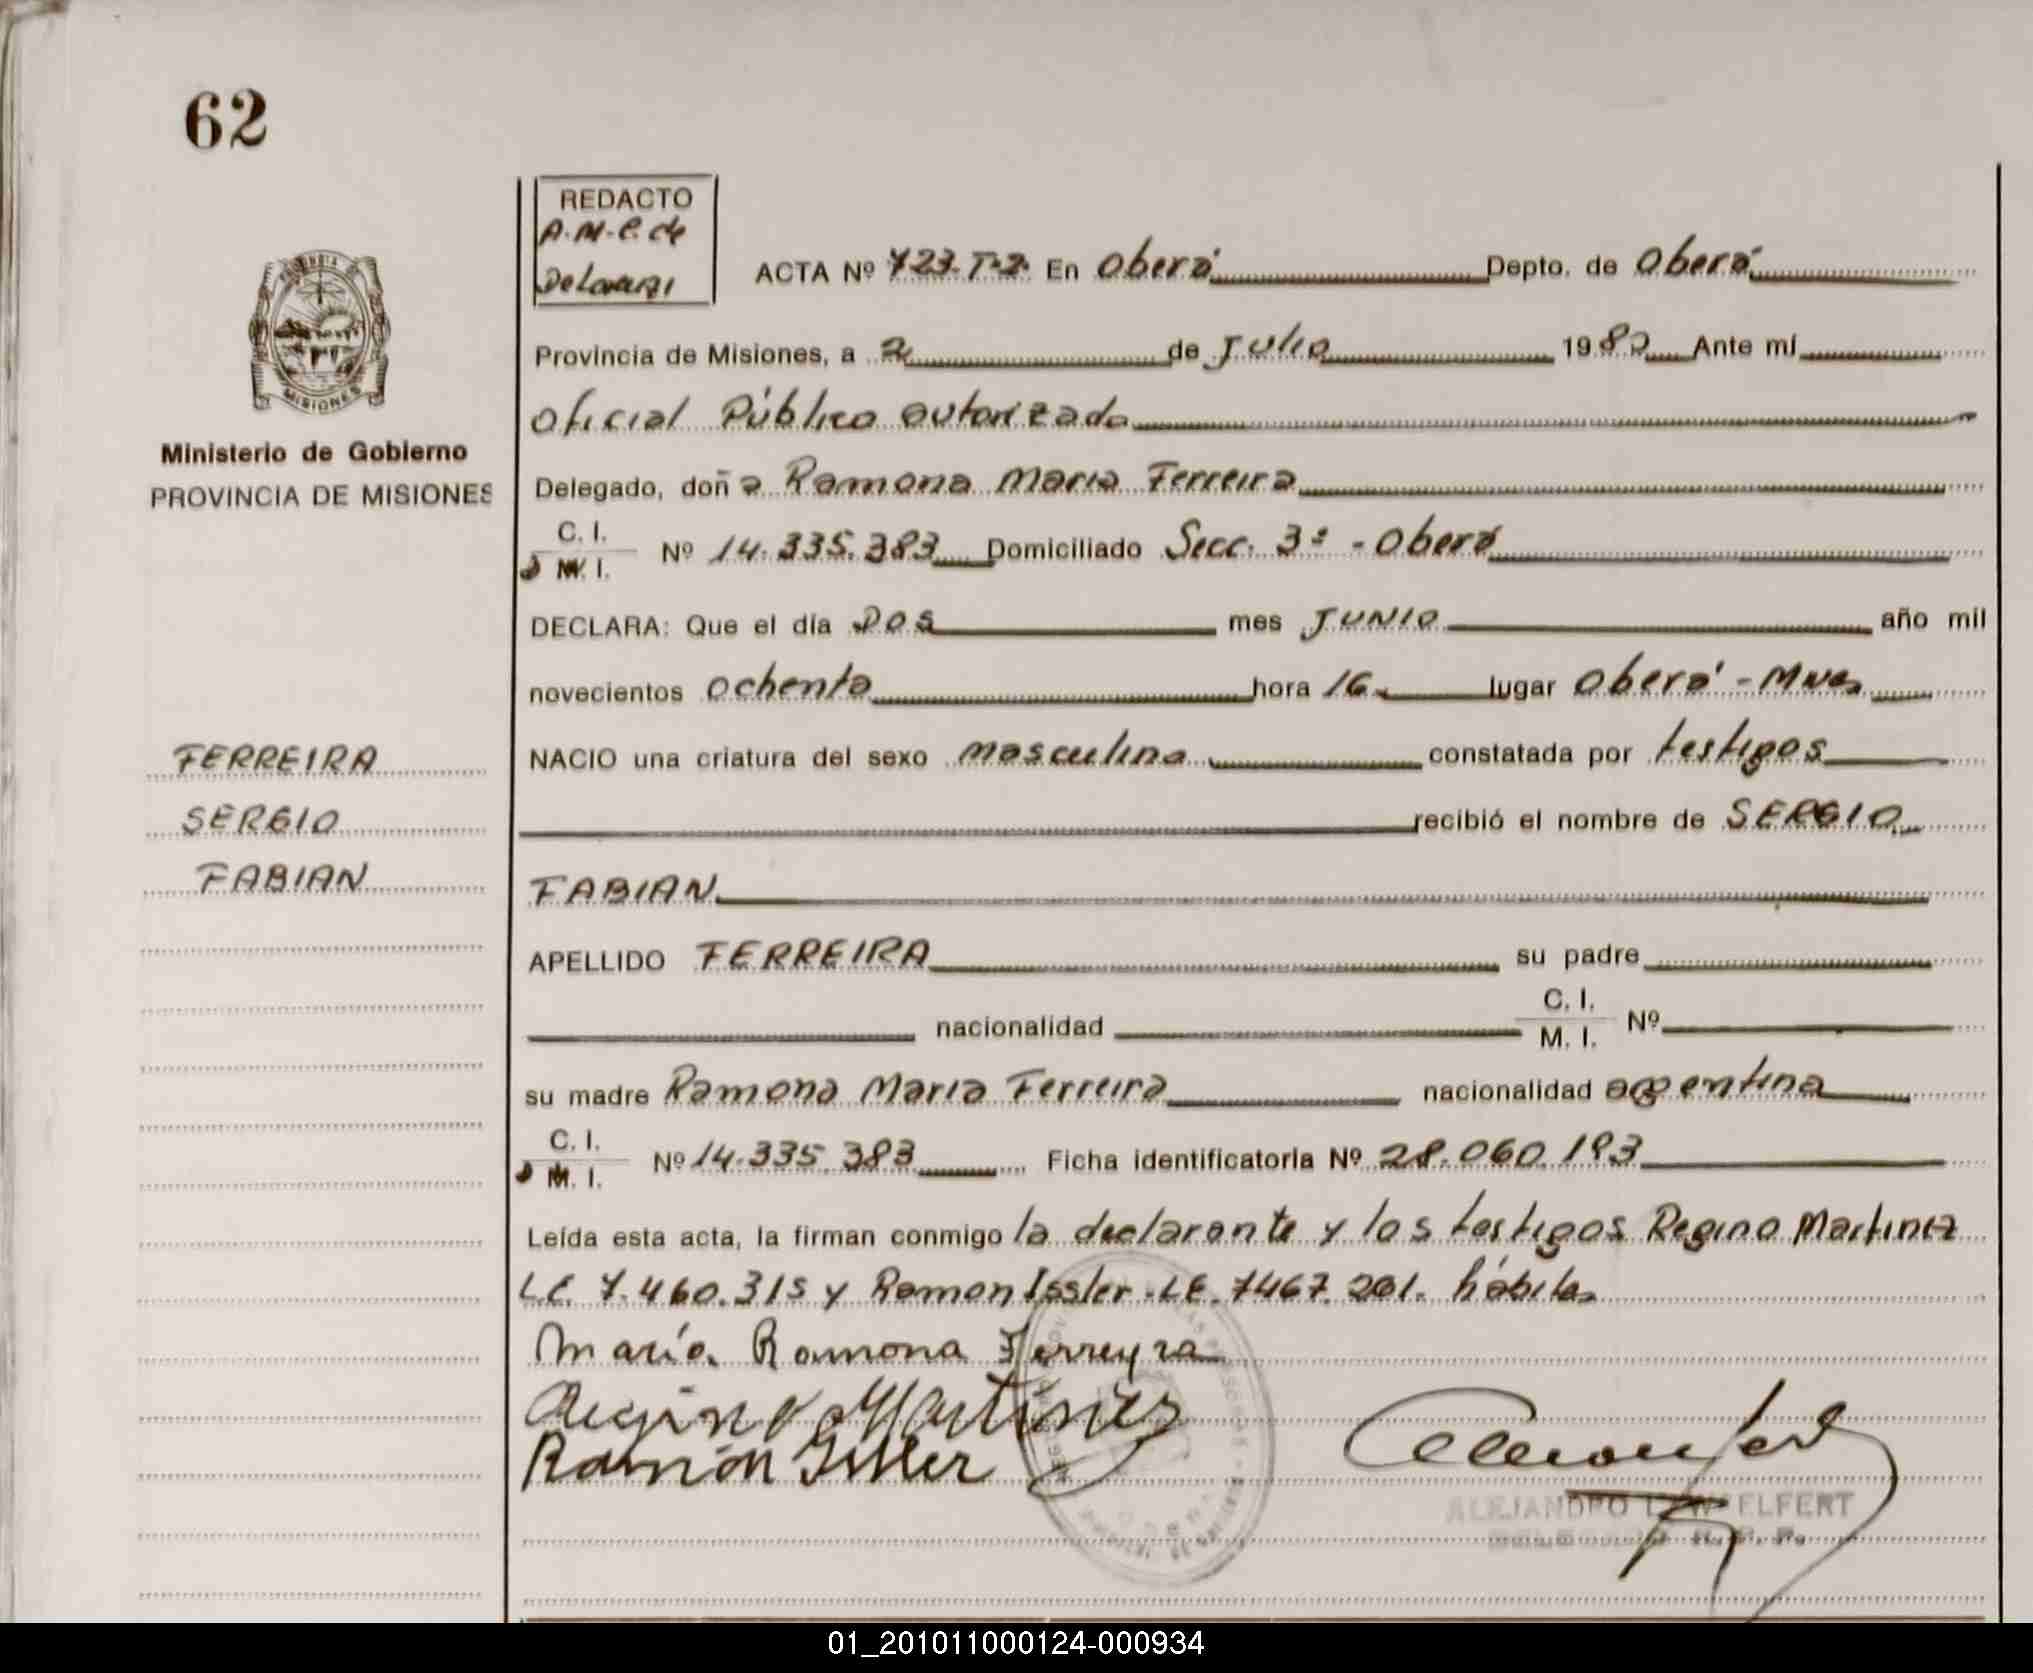 62
REDACTO
A.M.C. de
ACTA Nº 723.T-2. En Oberá Depto. de Oberá
Provincia de Misiones, a 2 de Julio 1980 Ante mí
Oficial Público autorizado
Delegado, doña Ramona Maria Ferreira
C. I.
M. I. Nº 14.335.383 Domiciliado Secc. 3ª - Oberá
DECLARA: Que el día DOS mes JUNIO año mil
novecientos ochenta hora 16 lugar Oberá - Mnes
NACIO una criatura del sexo masculino constatada por testigos
recibió el nombre de SERGIO
FABIAN
APELLIDO FERREIRA su padre
nacionalidad C. I.
M. I. Nº
su madre Ramona Maria Ferreira nacionalidad argentina
C. I.
M. I. Nº 14.335.383 Ficha identificatoria Nº 28.060.193
Leída esta acta, la firman conmigo la declarante y los testigos Regino Martinez
LE. 7.460.315 y Ramon Issler - LE. 7467.201. hábiles
María Ramona Ferreyra
Regino Martinez
Ramón Issler
ALEJANDRO
PROVINCIA DE
MISIONES
Ministerio de Gobierno
PROVINCIA DE MISIONES
FERREIRA
SERGIO
FABIAN
01_201011000124-000934